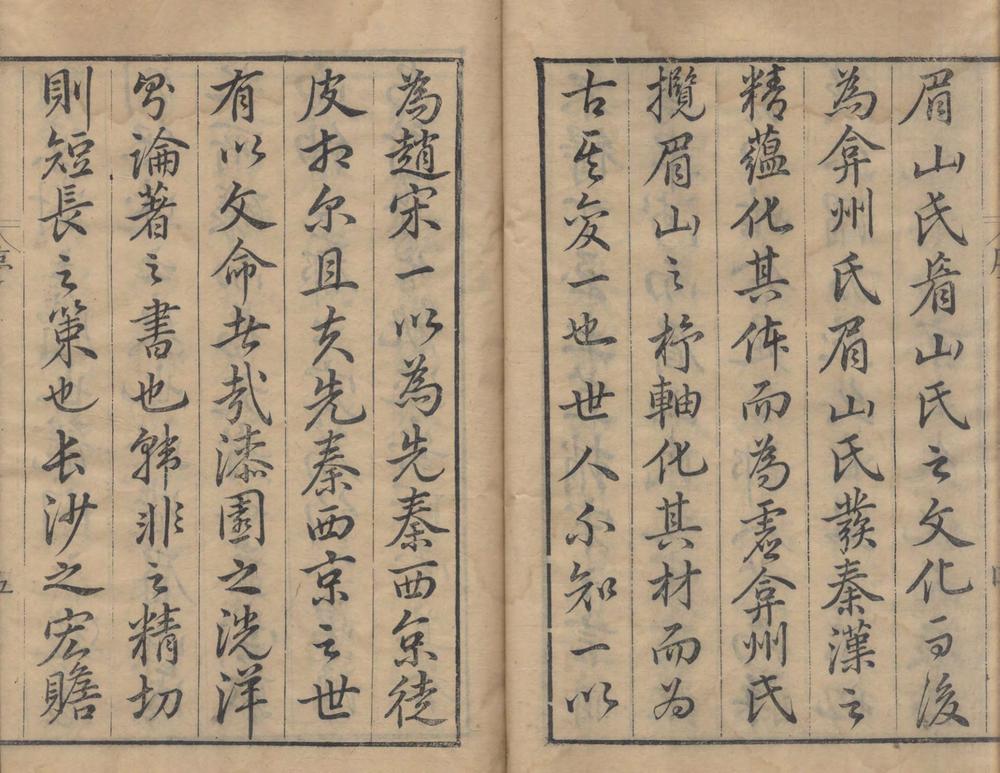 眉山氏眉山氏之文化而後
為弇州氏眉山氏發秦漢之
精蘊化其体而為虛弇州氏
攬眉山之杼軸化其材而為
古其變一也世人不知一以
為趙宋一以為先秦西京徒
皮相尔且夫先秦西京之世
有以文命者哉漆園之洸洋
論著之書也韓非之精切
則短長之策也長沙之宏贍